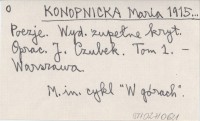 o
KONOPNICKA Maria 1915...
Poezje. Wyd. zupełne kryt.
Oprac. J. Czubek. Tom 1. –
Warszawa.
M. in. cykl "W górach".